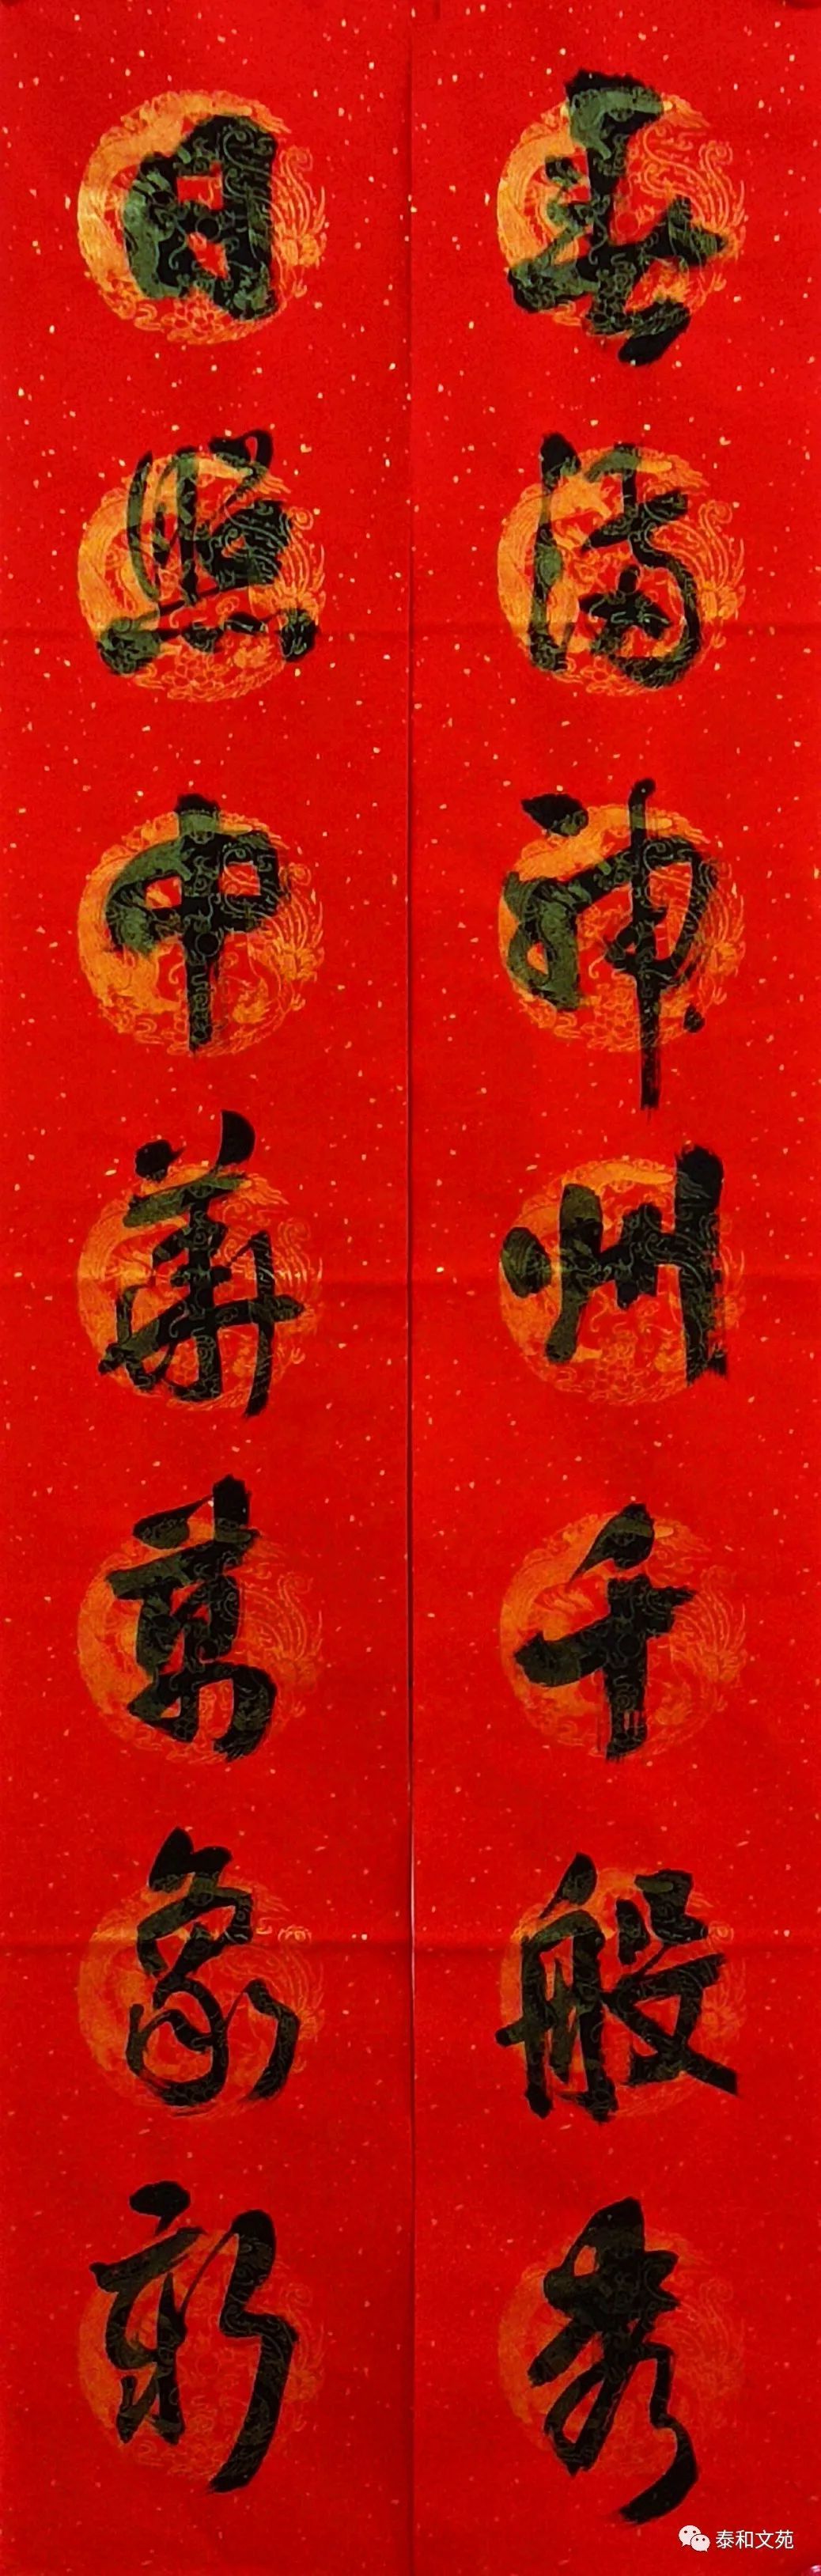 春滿神州千般秀
日照中華萬象新
泰和文苑